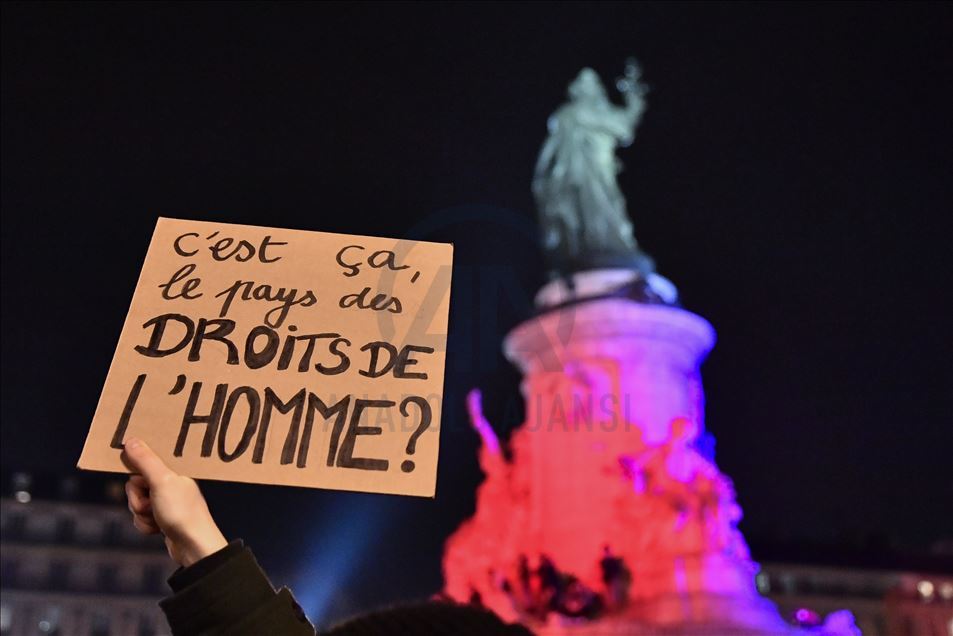 c'est ça,
le pays des
DROITS DE
L'HOMME?
ANADOLU AJANSI